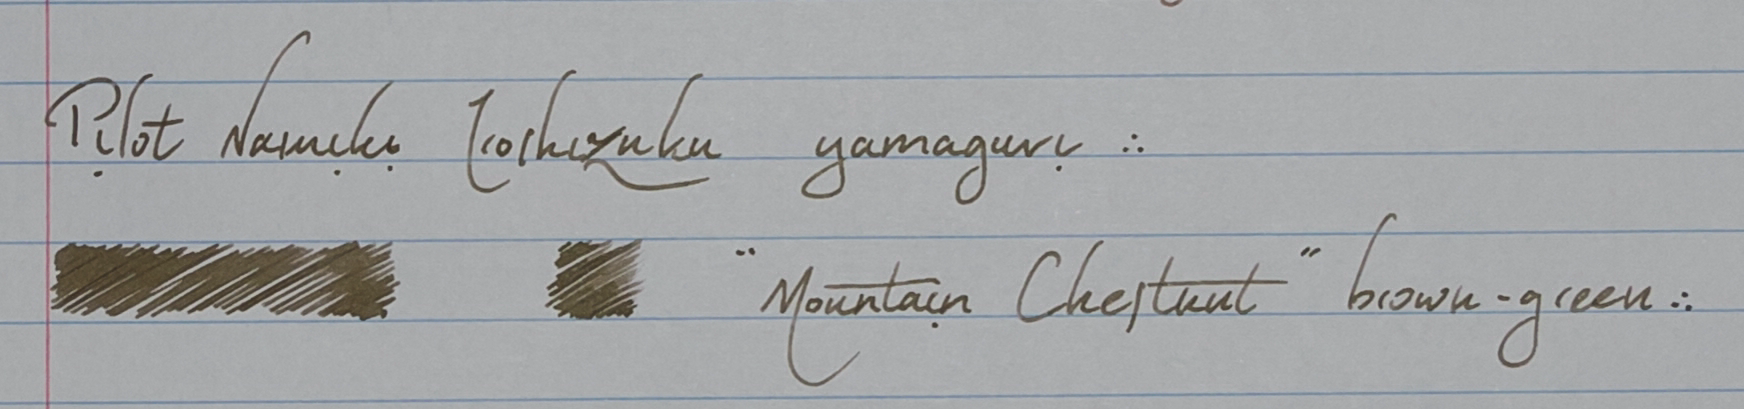 Pilot Namiki Iroshizuku yamaguri ∴
"Mountain Chestnut" brown-green ∴